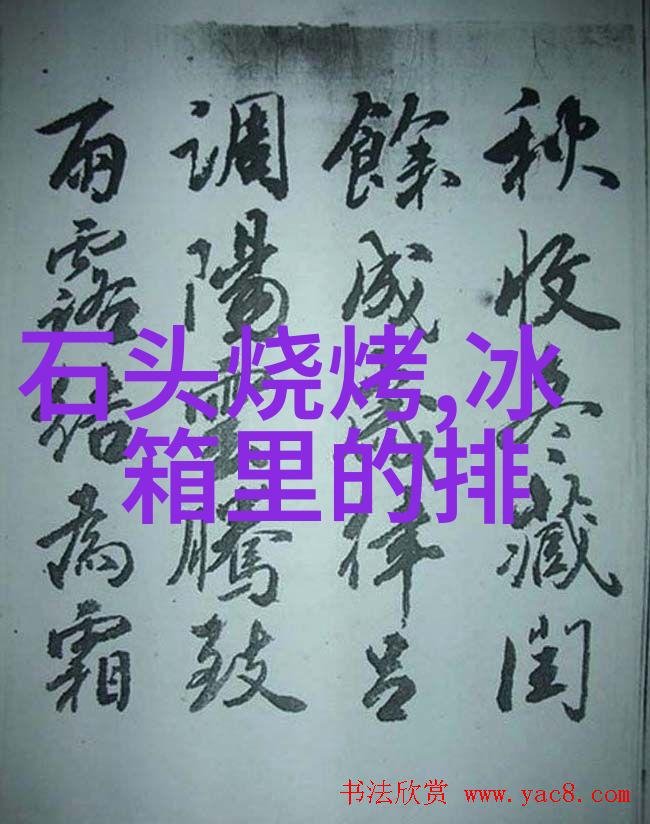 秋收冬藏閏
餘成歲律呂
調陽雲騰致
雨露結為霜
石头烧烤,冰
箱里的排
书法欣赏 www.yac8.com